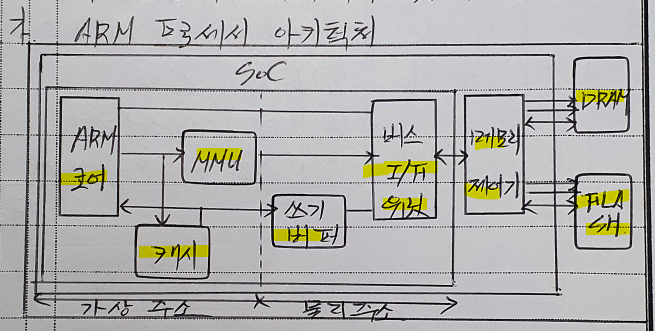 가. ARM 프로세서 아키텍처
SoC
ARM
코어
MMU
캐시
쓰기
버퍼
버스
I/F
유닛
메모리
제어기
DRAM
FLA
SH
가상 주소
물리주소